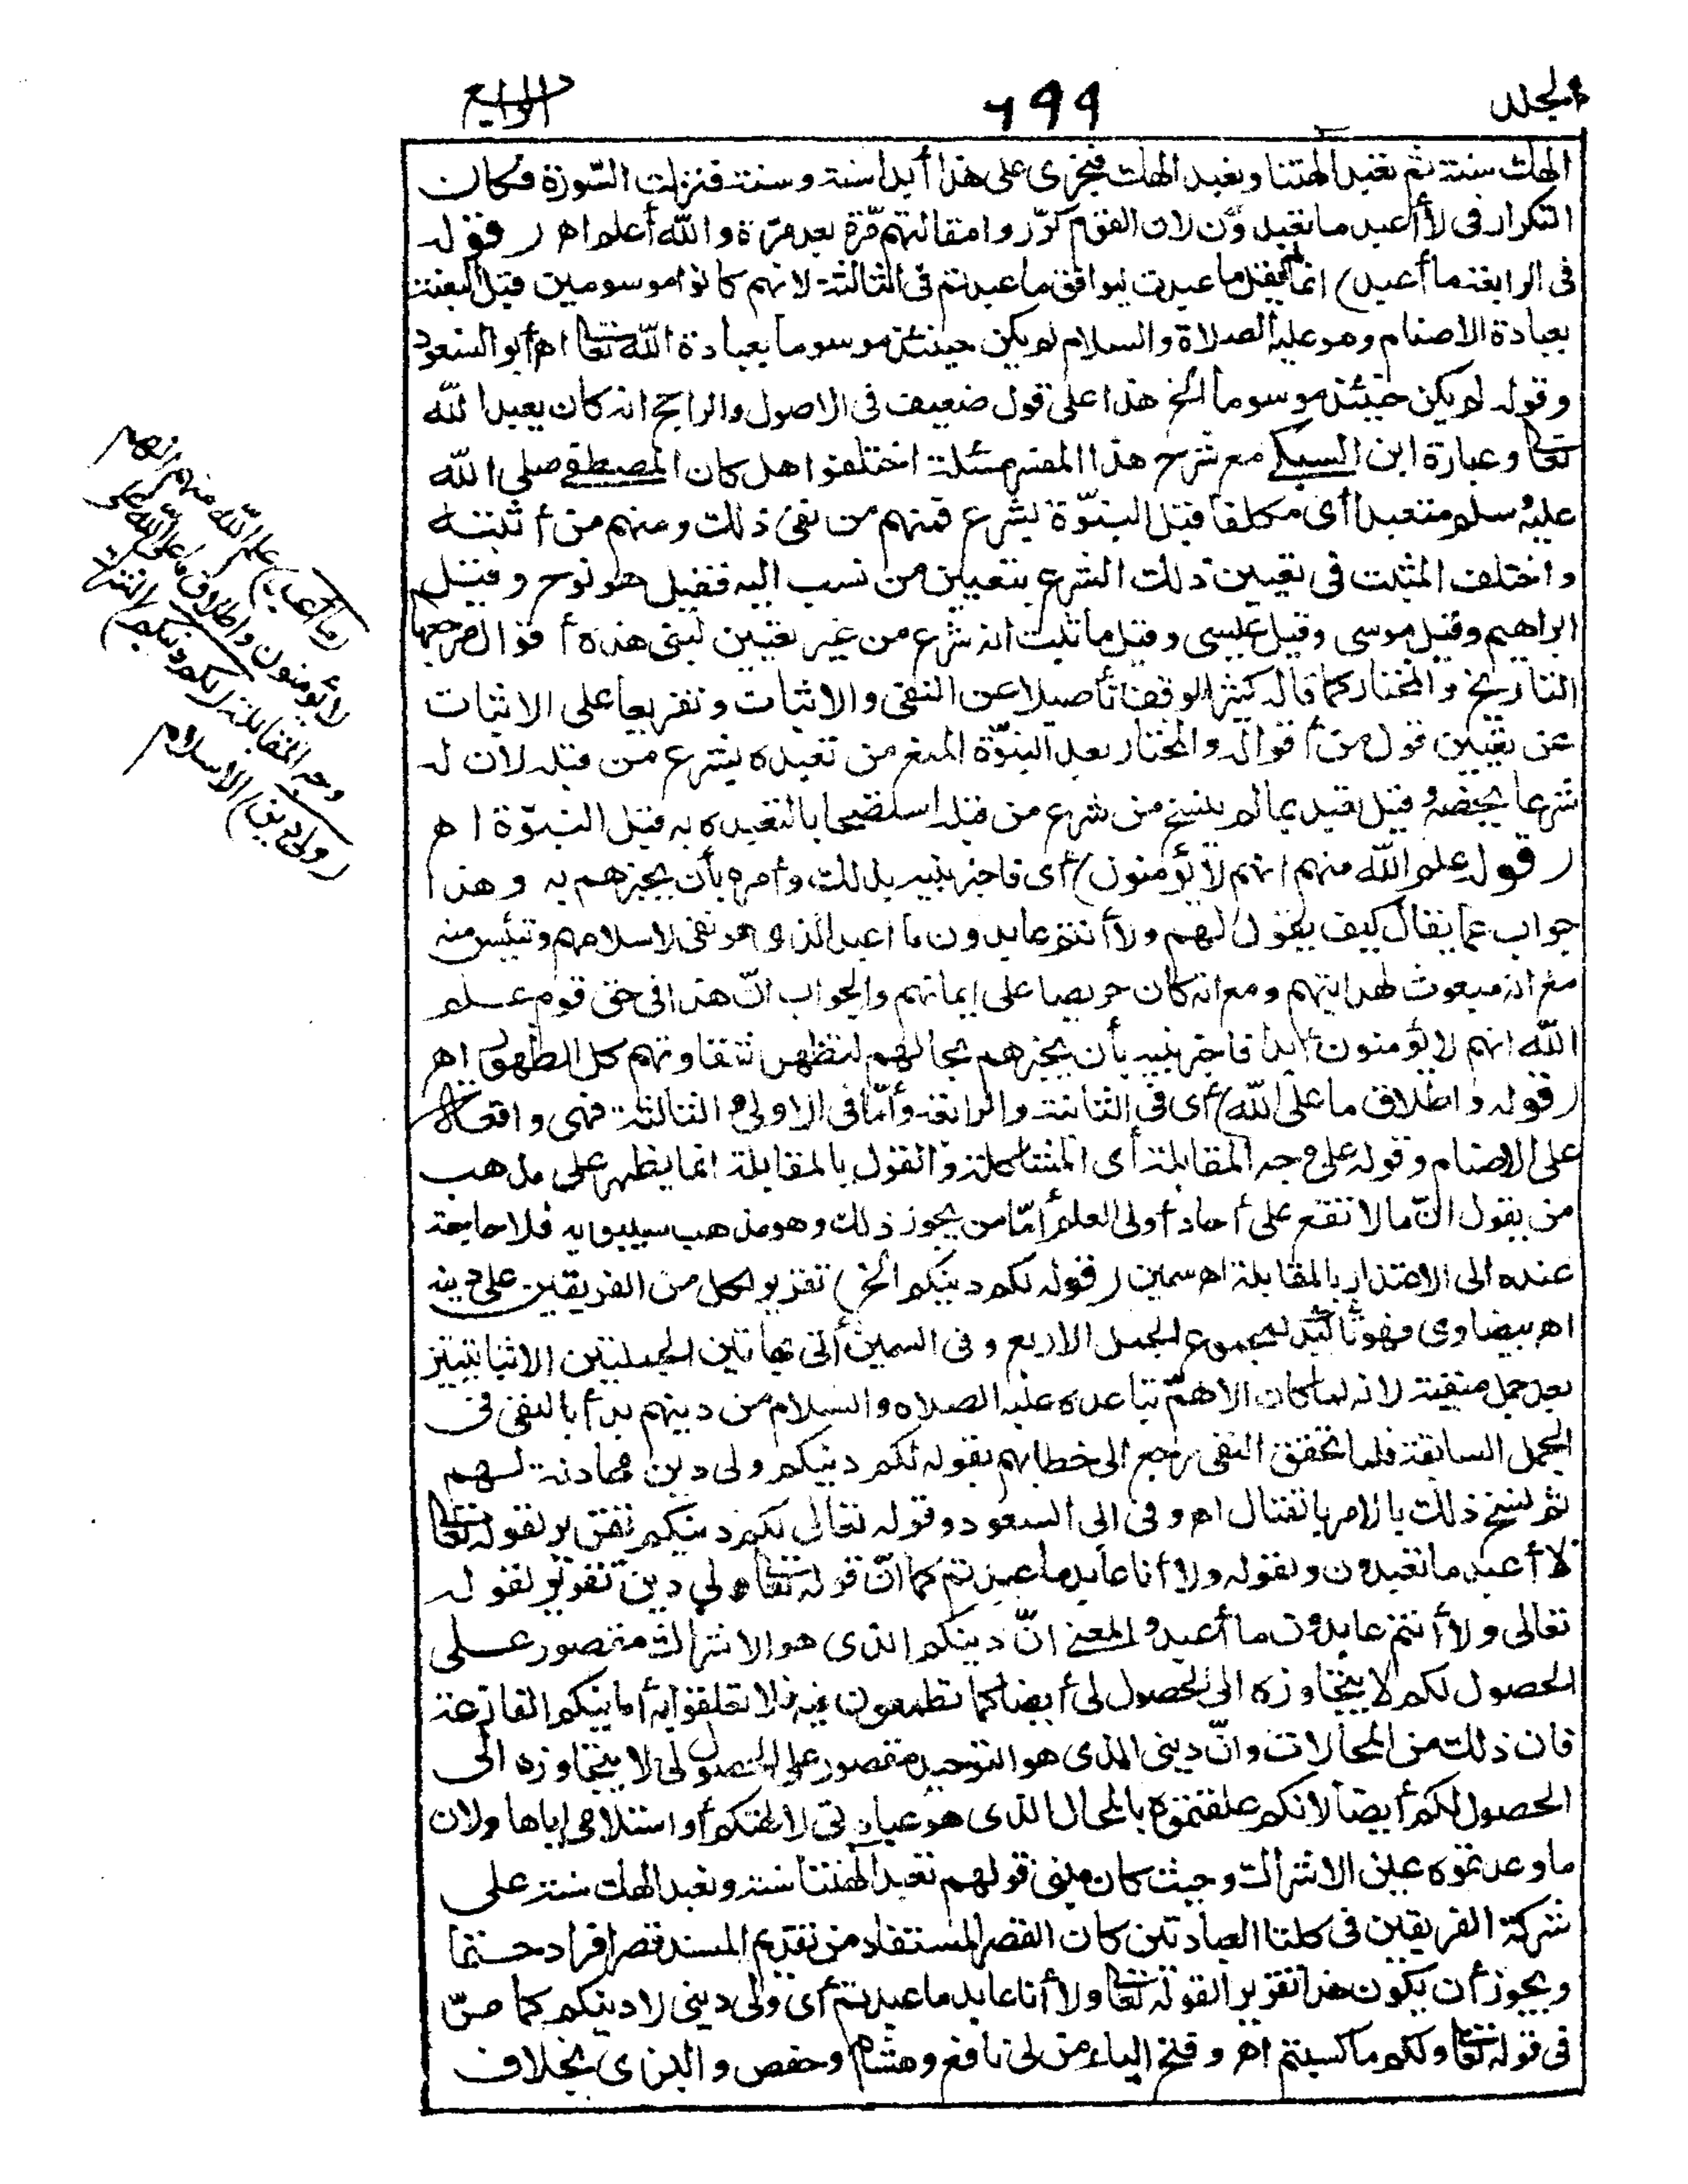 المجلد ٦٩٩ الرابع
الهك سنة ثم نعبد الهتنا ونعبد الهك فنجرى على هذا أبدا سنة وسنة فنزلت السّورة فكان
التكرار فى لا أعبد ما تعبدون لان القوم كرّروا مقالتهم مّرة بعد مرّة والله أعلم اهـ (قوله
فى الرابعة ما أعبد) انما لم يقل ما عبدت ليوافق ما عبدتم فى الثالثة لانهم كانوا موسومين قبل البعثة
بعبادة الاصنام وهو عليه الصلاة والسلام لم يكن حينئذ موسوما بعبادة الله تعا اهـ أبو السعود
وقوله لم يكن حينئذ موسوما الخ هذا على قول ضعيف فى الاصول والراجح انه كان يعبد الله
تعا وعبارة ابن السبكى مع شرح هذا المفسر مسئلة اختلفوا هل كان المصطفى صلى الله
عليه وسلم متعبدا أى مكلفا قبل النبوّة بشرع فمنهم من نفى ذلك ومنهم من أثبته
واختلف المثبت فى تعيين ذلك الشرع بتعيين من نسب اليه فقيل هو نوح وقيل
ابراهيم وقيل موسى وقيل عيسى وقيل ما ثبت انه شرع من غير تعيين لنبى هذه أقوال مرجعها
التاريخ والمختار كما قاله كثير الوقف تأصيلا عن النفى والاثبات وتفريعا على الاثبات
عن تعيين قول من أقواله والمختار بعد النبوّة المنع من تعبده بشرع من قبله لان له
شرعا يخصه وقيل تعبد بما لم ينسخ من شرع من قبله استصحابا لتعبده به قبل النبوّة اهـ
(قوله علم الله منهم انهم لا يؤمنون) أى فاخبر نبيه بذلك وأمره بأن يخبرهم به وهذا
جواب عما يقال كيف يقول لهم ولا أنتم عابدون ما أعبد الذى هو نفى لاسلامهم وتيئس منه
مع انه مبعوث لهدايتهم ومع انه كان حريصا على ايمانهم والجواب انّ هذا فى حق قوم علم
الله انهم لا يؤمنون أبدا فاخبر نبيه بأن يخبرهم بحالهم لتظهر شقاوتهم كل الظهور اهـ
(قوله واطلاق ما على الله) أى فى الثانية والرابعة وأمّا فى الاولى والثالثة فهى واقعة
على الاصنام وقوله على وجه المقابلة أى المشاكلة والقول بالمقابلة انما يظهر على مذهب
من يقول انّ ما لا تقع على أحاد أولى العلم أمّا من يجوز ذلك وهو مذهب سيبويه فلا حاجة
عنده الى الاعتذار بالمقابلة اهـ سمين (قوله لكم دينكم الخ) تقرير لكل من الفريقين على دينه
اهـ بيضاوى فهو تأكيد لمجموع الجمل الاربع وفى السمين أتى بهاتين الجملتين الاثباتيتين
بعد جمل منفية لانه لما كان الاهمّ تباعده عليه الصلاه والسلام من دينهم بدأ بالنفى فى
الجمل السابقة فلما تحقق النفى رجع الى خطابهم بقوله لكم دينكم ولى دين مهادنة لهم
ثم نسخ ذلك بالامر بالقتال اهـ وفى ابى السعود وقوله تعالى لكم دينكم تقرير لقوله تعا
لا أعبد ما تعبدون ولقوله ولا أنا عابد ما عبدتم كما انّ قوله تعا ولى دين تقرير لقوله
تعالى ولا أنتم عابدون ما أعبد والمعنى انّ دينكم الذى هو الاشراك مقصور على
الحصول لكم لا يتجاوزه الى الحصول لى أيضا كما تطمعون فيه فلا تعلقوا به أمانيكم الفارغة
فان ذلك من المحالات وانّ دينى الذى هو التوحيد مقصور على الحصول لى لا يتجاوزه الى
الحصول لكم أيضا لانكم علقتموه بالمحال الذى هو عبادتى لالهتكم أو استلامى اياها ولان
ما وعدتموه عين الاشراك وحيث كان مبنى قولهم تعبد الهتنا سنة ونعبد الهك سنة على
شركة الفريقين فى كلتا العبادتين كان القصر المستفاد من تقديم المسند قصر افراد حتما
ويجوز أن يكون هذا تقريرا لقوله تعا ولا أنا عابد ما عبدتم أى ولى دينى لا دينكم كما مرّ
فى قوله تعا ولكم ما كسبتم اهـ وفتح الياء من لى نافع وهشام وحفص والبزى بخلاف
(ما أعبد) علم الله منهم انهم
لا يؤمنون واطلاق ما على الله على
وجه المقابلة (لكم دينكم) الشرك
(ولى دين) الاسلام